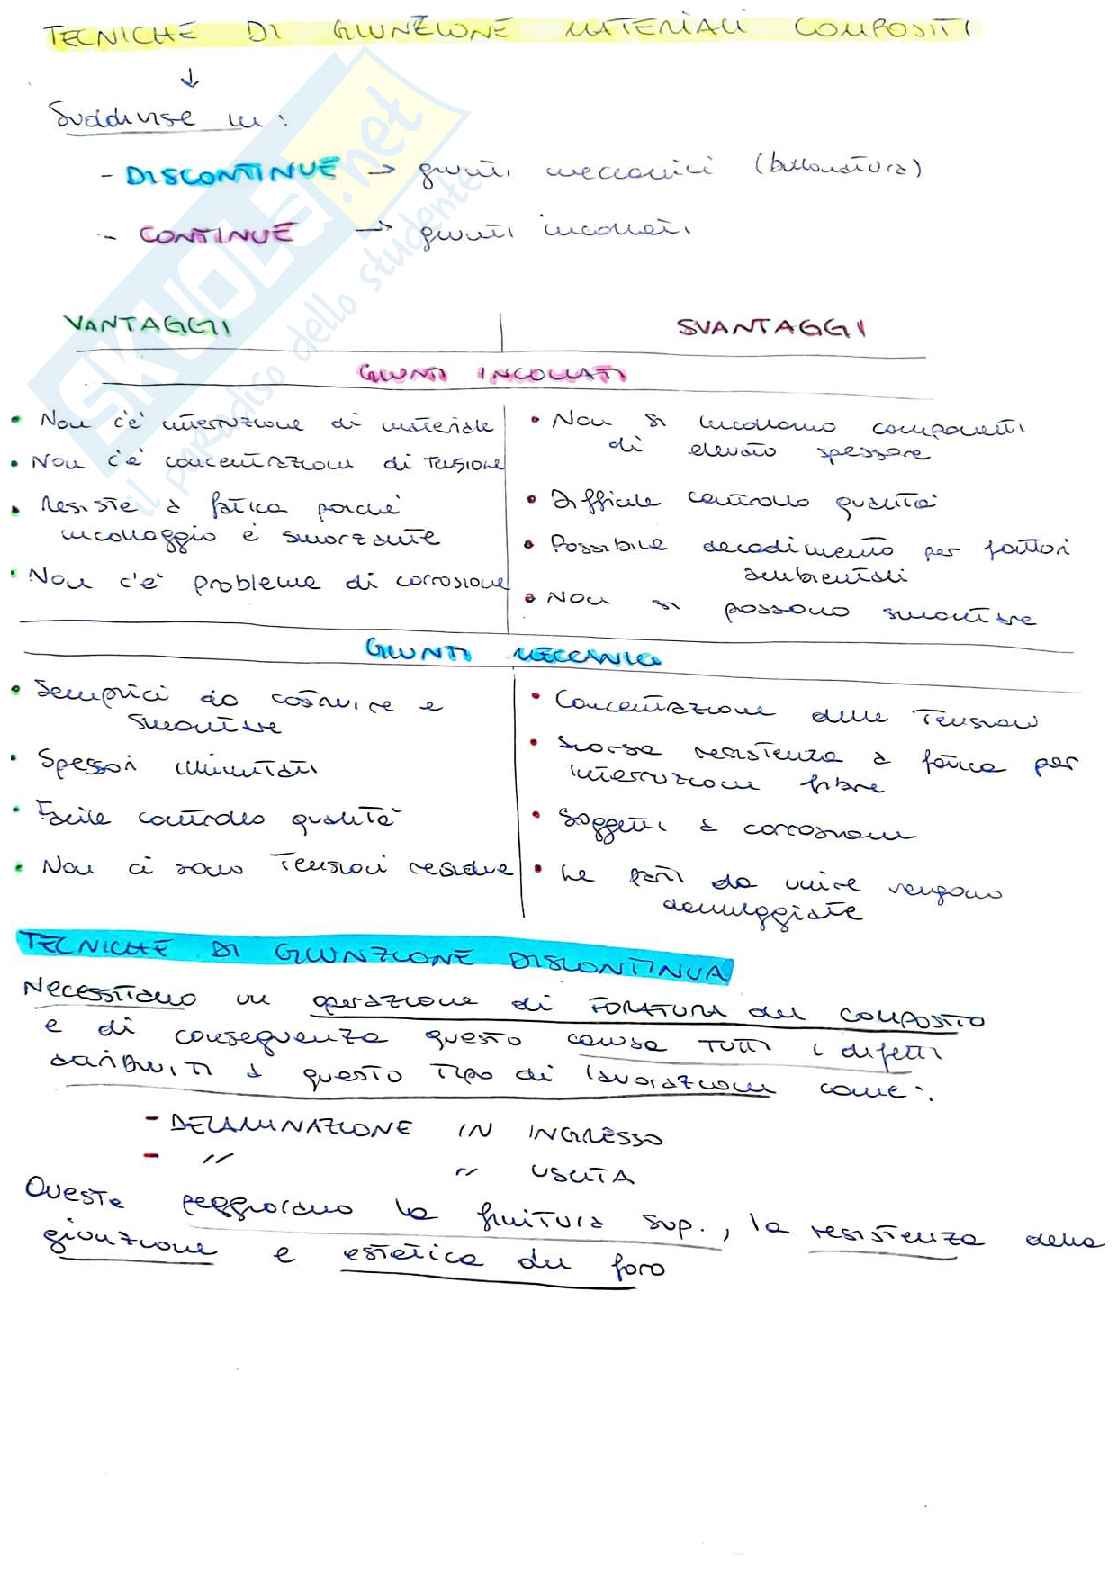 TECNICHE DI GIUNZIONE MATERIALI COMPOSITI
↓
Suddivise in:
- DISCONTINUE → giunti meccanici (bullonatura)
- CONTINUE → giunti incollati
VANTAGGI SVANTAGGI
GIUNTI INCOLLATI
• Non c'è interruzione di materiale
• Non c'è concentrazioni di tensione
• Resiste a fatica perché
incollaggio è smorzante
• Non c'è problema di corrosione
• Non si incollano componenti
di elevato spessore
• Difficile controllo qualità
• Possibile decadimento per fattori
ambientali
• Non si possono smontare
GIUNTI MECCANICI
• Semplici da costruire e
smontare
• Spessori illimitati
• Facile controllo qualità
• Non ci sono tensioni residue
• Concentrazione delle tensioni
• Scarsa resistenza a fatica per
interruzioni fibre
• Soggetti a corrosioni
• Le parti da unire vengono
danneggiate
TECNICHE DI GIUNZIONE DISCONTINUA
Necessitano un operazione di FORATURA del COMPOSITO
e di conseguenza questo causa TUTTI i difetti
attribuiti a questo tipo di lavorazioni come:
- DELAMINAZIONE IN INGRESSO
- " " USCITA
Queste peggiorano la finitura sup., la resistenza della
giunzione e estetica del foro
SKUOLA.net
il paradiso dello studente